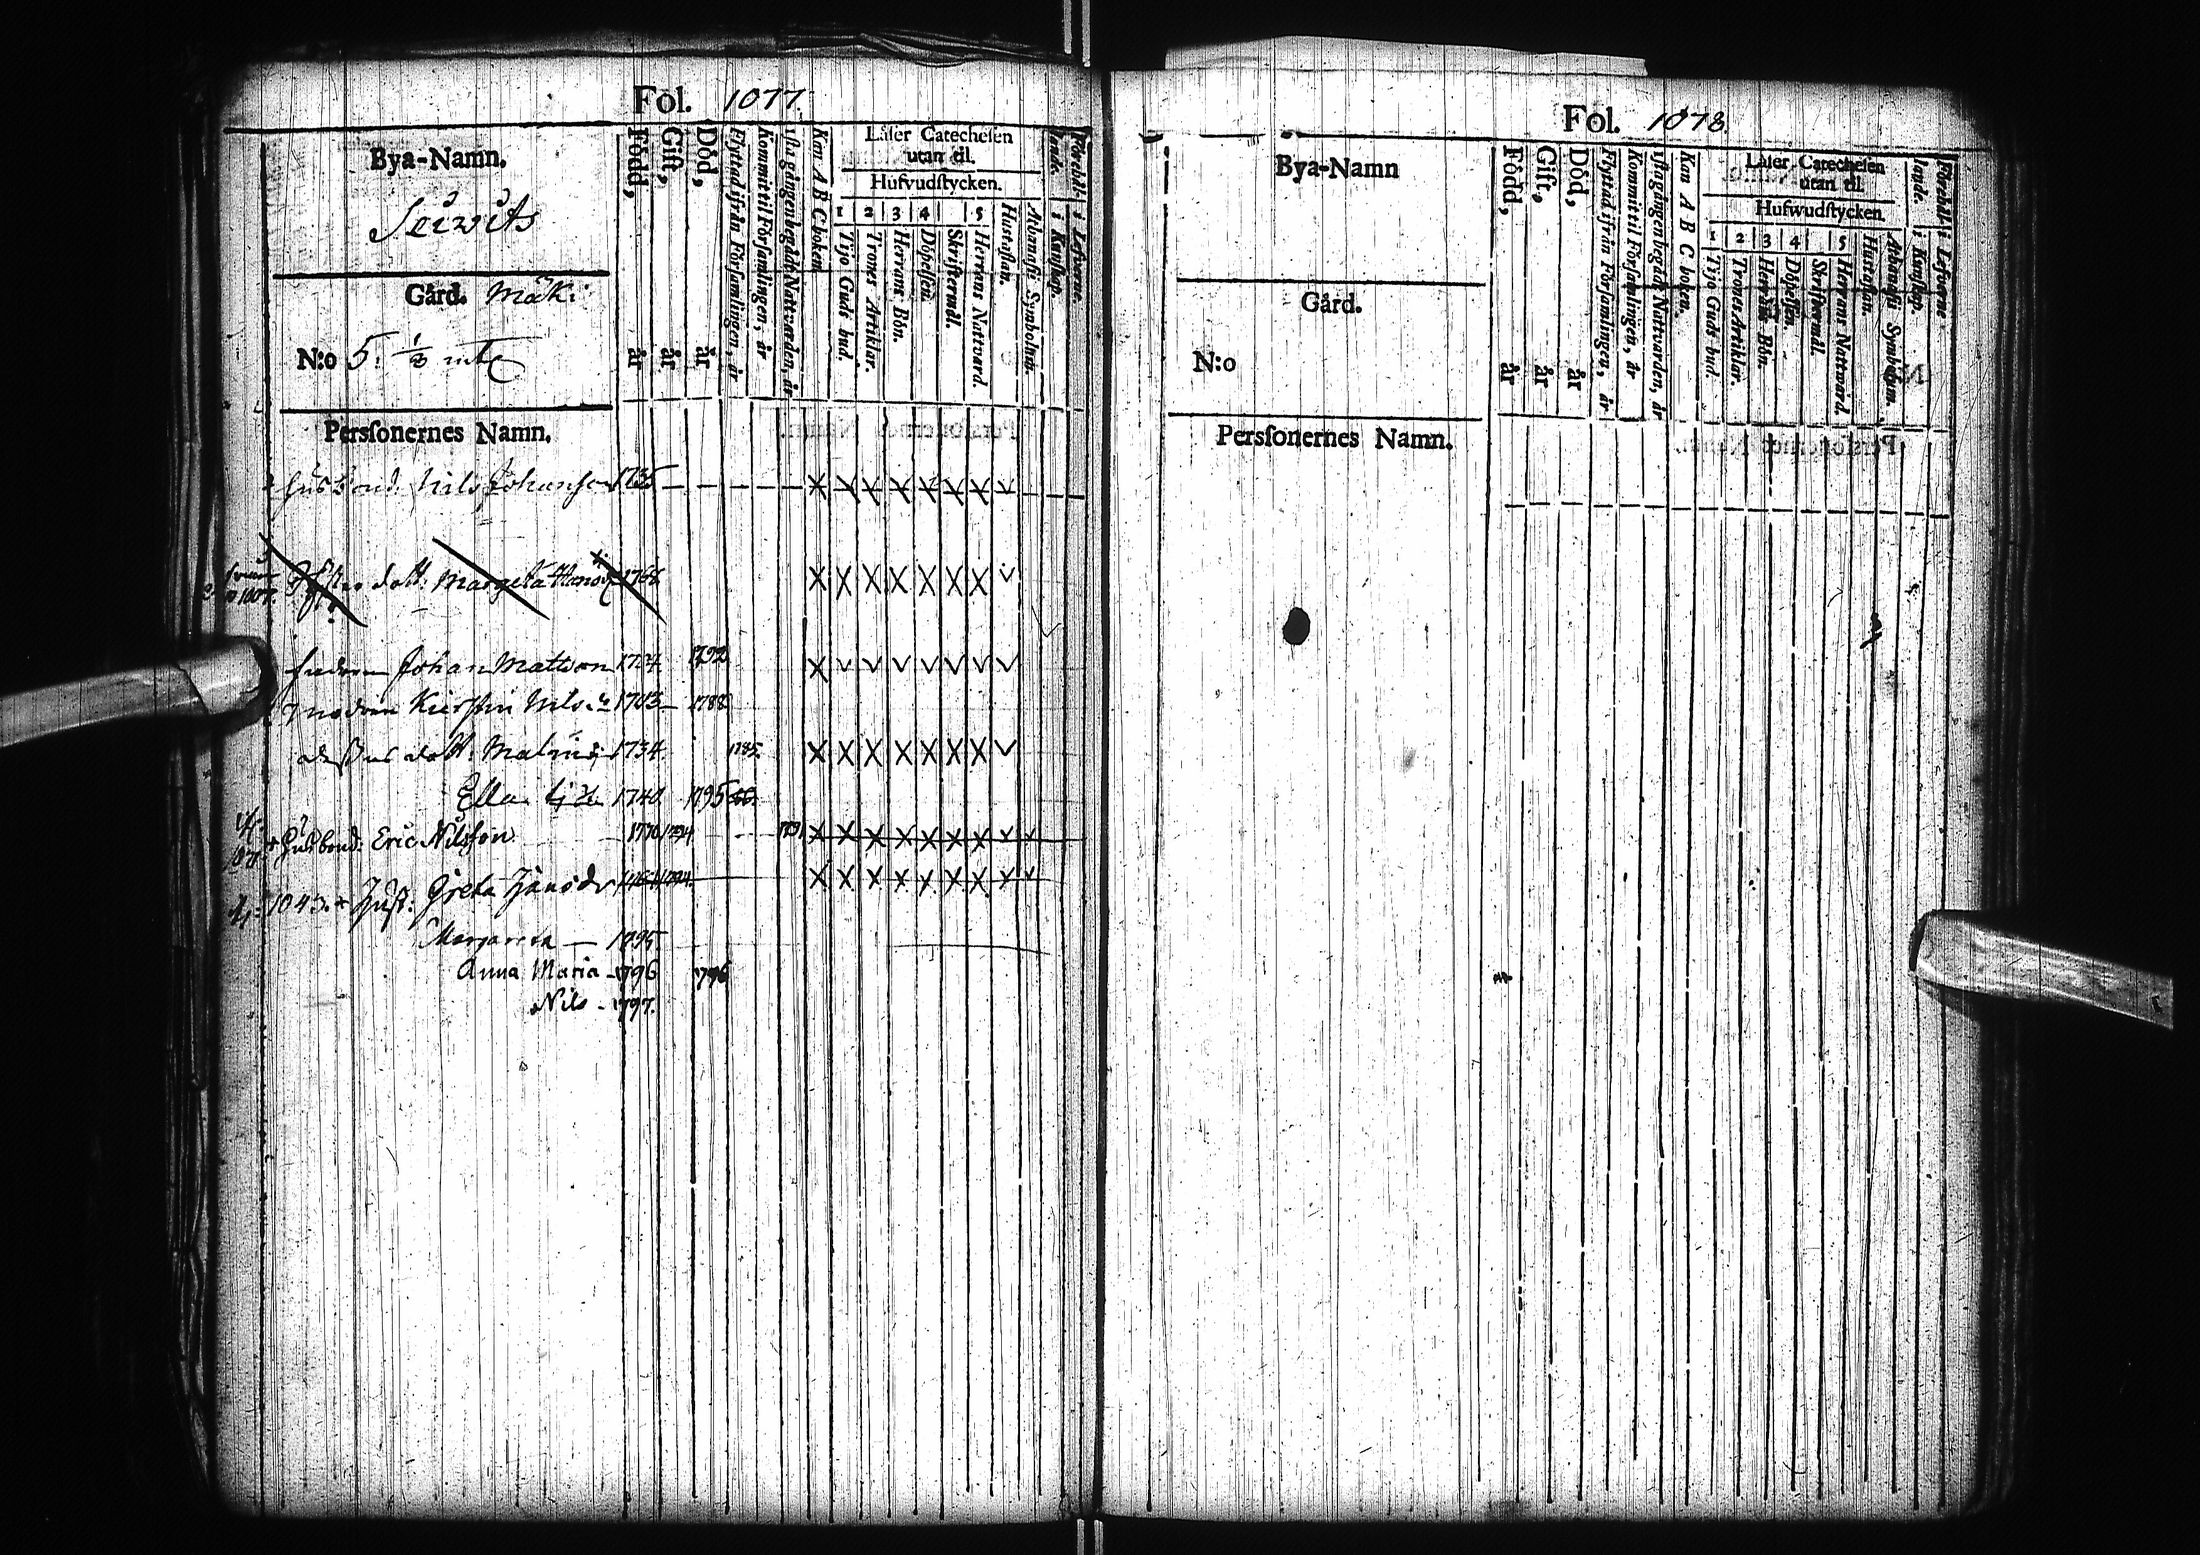 Fol. 1077.
Bya-Namn.
Gård. Mäki
N:o 5. 1/8 mtl
Persſonernes Namn.
Född, år
Gift, år
Död, år
Flyttad ifrån Förſamlingen, år
Kommit til Förſamlingen, år
1ſta gången begådt Nattvarden, år
Kan A B C boken.
Läſer Catecheſen utan til.
Hufvudſtycken.
1 2 3 4 5
Tijo Guds bud.
Trones Artiklar.
Herrans Bön.
Döpelſen.
Skriftermål.
Herrans Nattvard.
Hustaflan.
Athanaſii Symbolum.
Förehållande.
i Kunſkap.
i Lefverne.
Husbond: Nils Johansson 1735
dott: Margeta 1768
Fadren Johan Mattsson 1792
Modren Kierstin Nils 1703 1788
dess dott. Malin 1734. 1785.
Ella 1740. 1795
Husbond: Eric Nilsson 1770 1794 1791
1043. Hust: Greta 1794.
Margareta 1795
Anna Maria 1796 1796
Nils - 1797.
Fol. 1078.
Bya-Namn
Gård.
N:o
Persſonernes Namn.
Född, år
Gift, år
Död, år
Flyttad ifrån Förſamlingen, år
Kommit til Förſamlingen, år
1ſta gången begådt Nattvarden, år
Kan A B C boken.
Läſer Catecheſen utan til.
Hufwudſtycken.
1 2 3 4 5
Tijo Guds bud.
Trones Artiklar.
Herrans Bön.
Döpelſen.
Skriftermål.
Herrans Nattvard.
Hustaflan.
Athanaſii Symbolum.
Förehållande.
i Kunſkap.
i Lefverne.